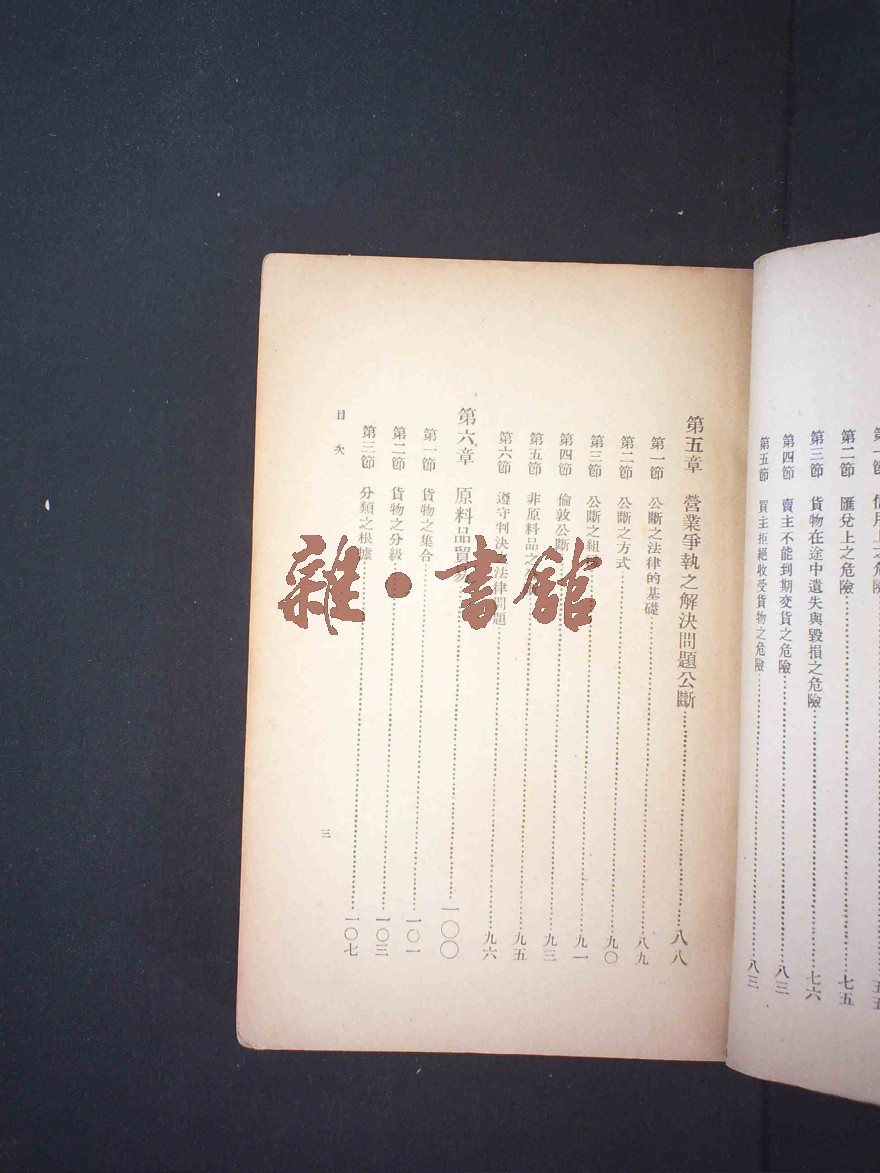 第一節 信用上之危險 五五
第二節 匯兌上之危險 七五
第三節 貨物在途中遺失與毀損之危險 七六
第四節 賣主不能到期交貨之危險 八三
第五節 買主拒絕收受貨物之危險 八三
第五章 營業爭執之解決問題公斷 八八
第一節 公斷之法律的基礎 八九
第二節 公斷之方式 九〇
第三節 公斷之組 九一
第四節 倫敦公斷 九三
第五節 非原料品之 九五
第六節 遵守判決之法律問題 九六
第六章 原料品貿易 一〇〇
第一節 貨物之集合 一〇一
第二節 貨物之分級 一〇三
第三節 分類之根據 一〇七
目次
三
雜·書館